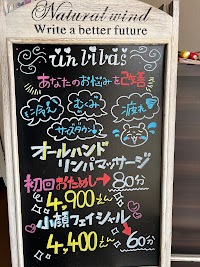 Natural wind
Write a better future
un Libas
あなたのお悩みを改善
むくみ
疲れ
サイズダウン
オールハンド
リンパマッサージ
初回おためし→80分
4,900えん
小顔フェイシャル
4,400えん→60分